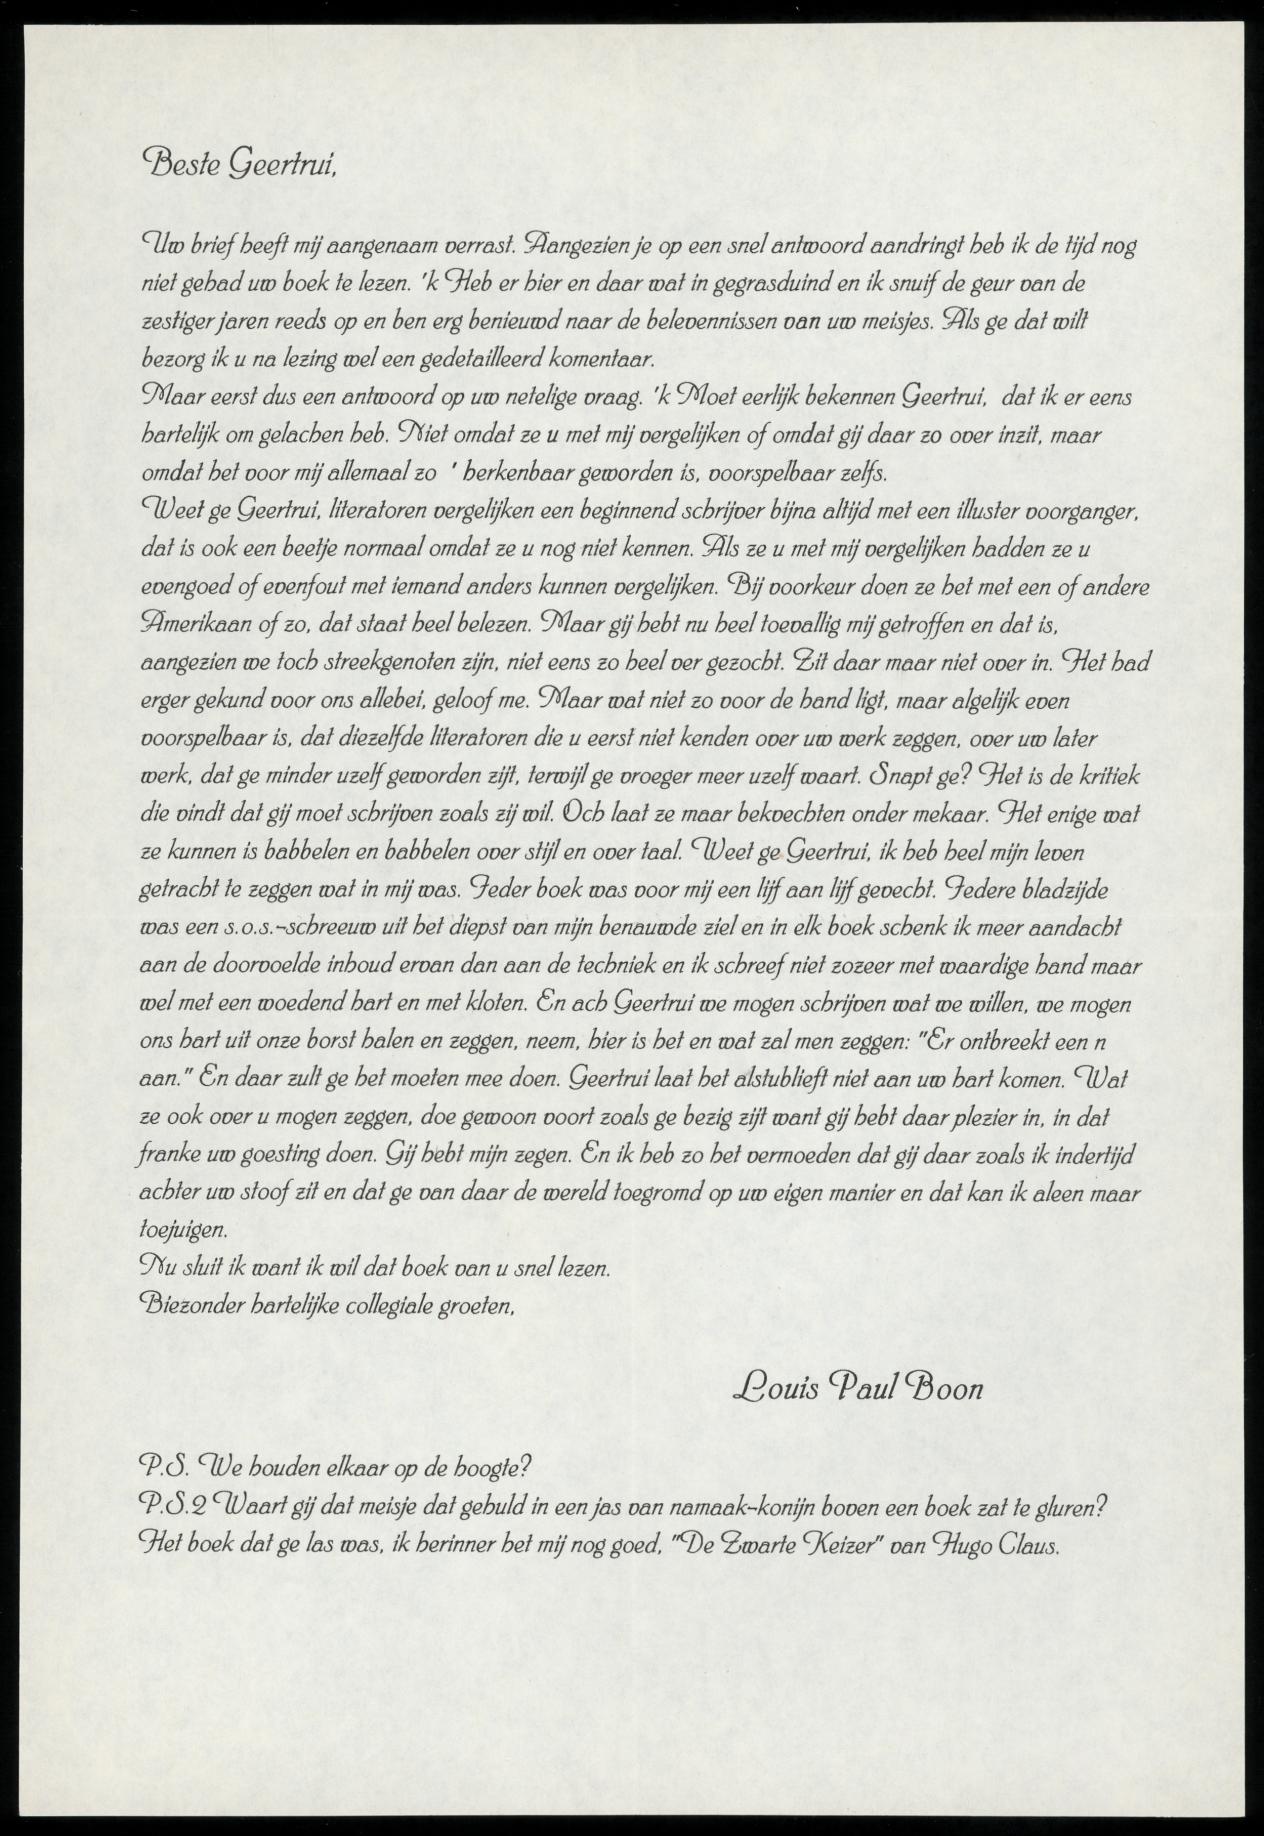 Beste Geertrui,
Uw brief heeft mij aangenaam verrast. Aangezien je op een snel antwoord aandringt heb ik de tijd nog
niet gehad uw boek te lezen. 'k Heb er hier en daar wat in gegrasduind en ik snuif de geur van de
zestiger jaren reeds op en ben erg benieuwd naar de belevennissen van uw meisjes. Als ge dat wilt
bezorg ik u na lezing wel een gedetailleerd komentaar.
Maar eerst dus een antwoord op uw netelige vraag. 'k Moet eerlijk bekennen Geertrui, dat ik er eens
hartelijk om gelachen heb. Niet omdat ze u met mij vergelijken of omdat gij daar zo over inzit, maar
omdat het voor mij allemaal zo ' herkenbaar geworden is, voorspelbaar zelfs.
Weet ge Geertrui, literatoren vergelijken een beginnend schrijver bijna altijd met een illuster voorganger,
dat is ook een beetje normaal omdat ze u nog niet kennen. Als ze u met mij vergelijken hadden ze u
evengoed of evenfout met iemand anders kunnen vergelijken. Bij voorkeur doen ze het met een of andere
Amerikaan of zo, dat staat heel belezen. Maar gij hebt nu heel toevallig mij getroffen en dat is,
aangezien we toch streekgenoten zijn, niet eens zo heel ver gezocht. Zit daar maar niet over in. Het had
erger gekund voor ons allebei, geloof me. Maar wat niet zo voor de hand ligt, maar algelijk even
voorspelbaar is, dat diezelfde literatoren die u eerst niet kenden over uw werk zeggen, over uw later
werk, dat ge minder uzelf geworden zijt, terwijl ge vroeger meer uzelf waart. Snapt ge? Het is de kritiek
die vindt dat gij moet schrijven zoals zij wil. Och laat ze maar bekvechten onder mekaar. Het enige wat
ze kunnen is babbelen en babbelen over stijl en over taal. Weet ge Geertrui, ik heb heel mijn leven
getracht te zeggen wat in mij was. Ieder boek was voor mij een lijf aan lijf gevecht. Iedere bladzijde
was een s.o.s.-schreeuw uit het diepst van mijn benauwde ziel en in elk boek schenk ik meer aandacht
aan de doorvoelde inhoud ervan dan aan de techniek en ik schreef niet zozeer met waardige hand maar
wel met een woedend hart en met kloten. En ach Geertrui we mogen schrijven wat we willen, we mogen
ons hart uit onze borst halen en zeggen, neem, hier is het en wat zal men zeggen: "Er ontbreekt een n
aan." En daar zult ge het moeten mee doen. Geertrui laat het alstublieft niet aan uw hart komen. Wat
ze ook over u mogen zeggen, doe gewoon voort zoals ge bezig zijt want gij hebt daar plezier in, in dat
franke uw goesting doen. Gij hebt mijn zegen. En ik heb zo het vermoeden dat gij daar zoals ik indertijd
achter uw stoof zit en dat ge van daar de wereld toegromd op uw eigen manier en dat kan ik aleen maar
toejuigen.
Nu sluit ik want ik wil dat boek van u snel lezen.
Biezonder hartelijke collegiale groeten,
Louis Paul Boon
P.S. We houden elkaar op de hoogte?
P.S.2 Waart gij dat meisje dat gehuld in een jas van namaak-konijn boven een boek zat te gluren?
Het boek dat ge las was, ik herinner het mij nog goed, "De Zwarte Keizer" van Hugo Claus.